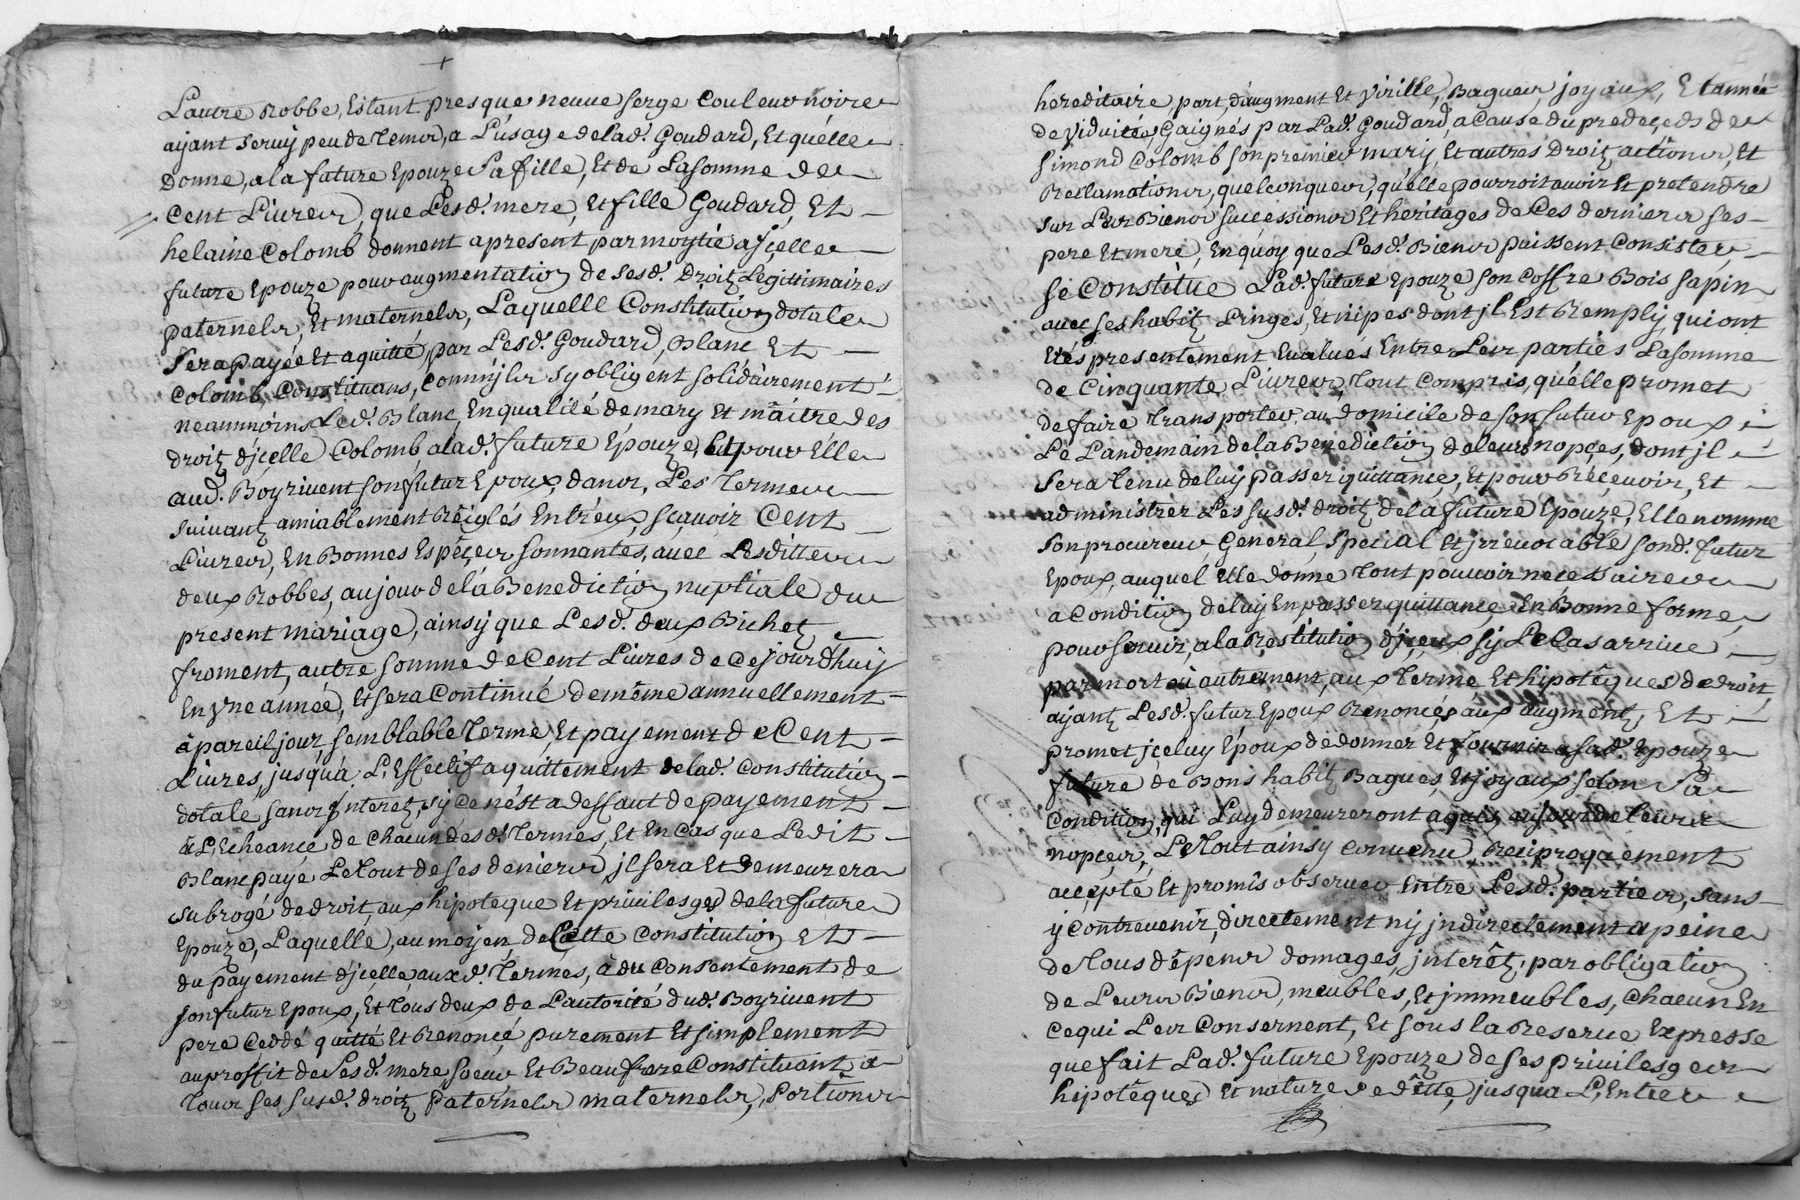 L'autre Robbe, Estant presque neuue serge Couleur noire
ayant seruy peu de Temps, a L'usage de lad. Goudard, Et quélle
Donne, a la future Epouze Sa fille, Et de La somme de
Cent Liures, que Lesd. mere, Et fille Goudard, Et
helaine Colomb donnent a present par moytié a jçelle
future Epouze pour augmentation de sesd. droitz Legitimaires
paternels, Et maternels, Laquelle Constitution dotale
Sera payéé Et aquitté, par Lesd. Goudard, Blanc Et
Colomb, Constituans, comm'jls sy obligent solidairement
neammoins Led. Blanc, En qualité de mary Et maitre des
droitz d'jçelle Colomb a lad. future Epouze, Et pour Elle
aud. Boyriuent son futur Epoux, dans, Les Termes
suiuantz amiablement Réiglés Entr'eux, sçauoir Cent
Liures, En Bonnes Espéçes sonnantes, auec Lesdittes
deux Robbes, au jour de la Benediction nuptiale du
present mariage, ainsy que Lesd. deux Bichetz
froment, autre somme de Cent Liures de Cejourdhuy
En vne année, Et sera Continué de même annuellement
à pareil jour, semblable Terme, Et payement de Cent
Liures, jusqu'a L'Effectif aquittement de lad. Constitution
dotale, sans Interetz, sy Ce n'est a deffaut de payement
à L'Echeance de Chacun desd. Termes, Et En Cas que Ledit
Blanc paye Le Tout de ses deniers jl sera Et demeurera
subrogé de droit, aux hipoteque Et priuileges de la future
Epouze, Laquelle, au moyen de Cette Constitution Et
du payement d'jçelle auxd. Termes, à du Consentement de
son futur Epoux, Et Tous deux de L'autorité dud. Boyriuent
pere Ceddé quitté Et Renoncé purement Et simplement
au proffit de Sesd. mere, soeur Et Beaufrere Constituant, a
Tous ses susd. droitz Paternels maternels, Portions
hereditaire, part, d'augment Et virille, Bagues, joyaux, Et année
de viduitéé, Gaignés par Lad. Goudard, a Cause du predeçeds de
Simond Colomb son premier mary, Et autres Droitz actions, Et
Reclamations, quelconques, qu'elle pourroit auoir Et pretendre
sur Leur Biens successions Et heritages de Ces derniers ses
pere Et mere, En quoy que Lesd. Biens puissent Consister,
se Constitue Lad. future Epouze son Coffre Bois sapin
auec ses habitz Linges, Et nipes dont jl Est Remply, qui ont
Etés presentement Eualués Entre Leur parties La somme
de Cinquante Liures, Tout Compris, qu'elle promet
de faire Transporter au domicile de son futur Epoux
Le Landemain de la Benediction de leurs nopçes, dont jl
sera Tenu de luy passer quittance, Et pour Réçeuoir, Et
administrer Les susd. droitz de la future Epouze, Elle nomme
son procureur General, special Et jrreuocable sond. futur
Epoux, auquel Elle donne Tout pouuoir necessaires
a Condition de luy En passer quittance En Bonne forme,
pour seruir, a la Restitution d'jçeux sy Le Cas arriue
par mort ou autrement, aux Terme Et hipoteques de droit,
ayantz Lesd. futur Epoux Renoncés aux augmentz, Et
promet jceluy Epoux de donner Et fournir a sad. Epouze
future de Bons habitz Bagues, Et joyaux selon Sa
Condition, qui Luy demeureront aquis au jour de leurs
nopçes, Le Tout ainsy Conuenu Reciproquement
accépté Et promis obseruer Entre Lesd. parties, sans
y Contreuenir, directement ny jndirectement a peine
de Tous dépens domages, jnterêtz, par obligation
de Leurs Biens, meubles, Et jmmeubles, Chacun En
Ce qui Leur Consernent, Et sous la Reserue Expresse
que fait Lad. future Epouze de ses priuileges
hipotèques Et nature de dette, jusqu'a L'Entier